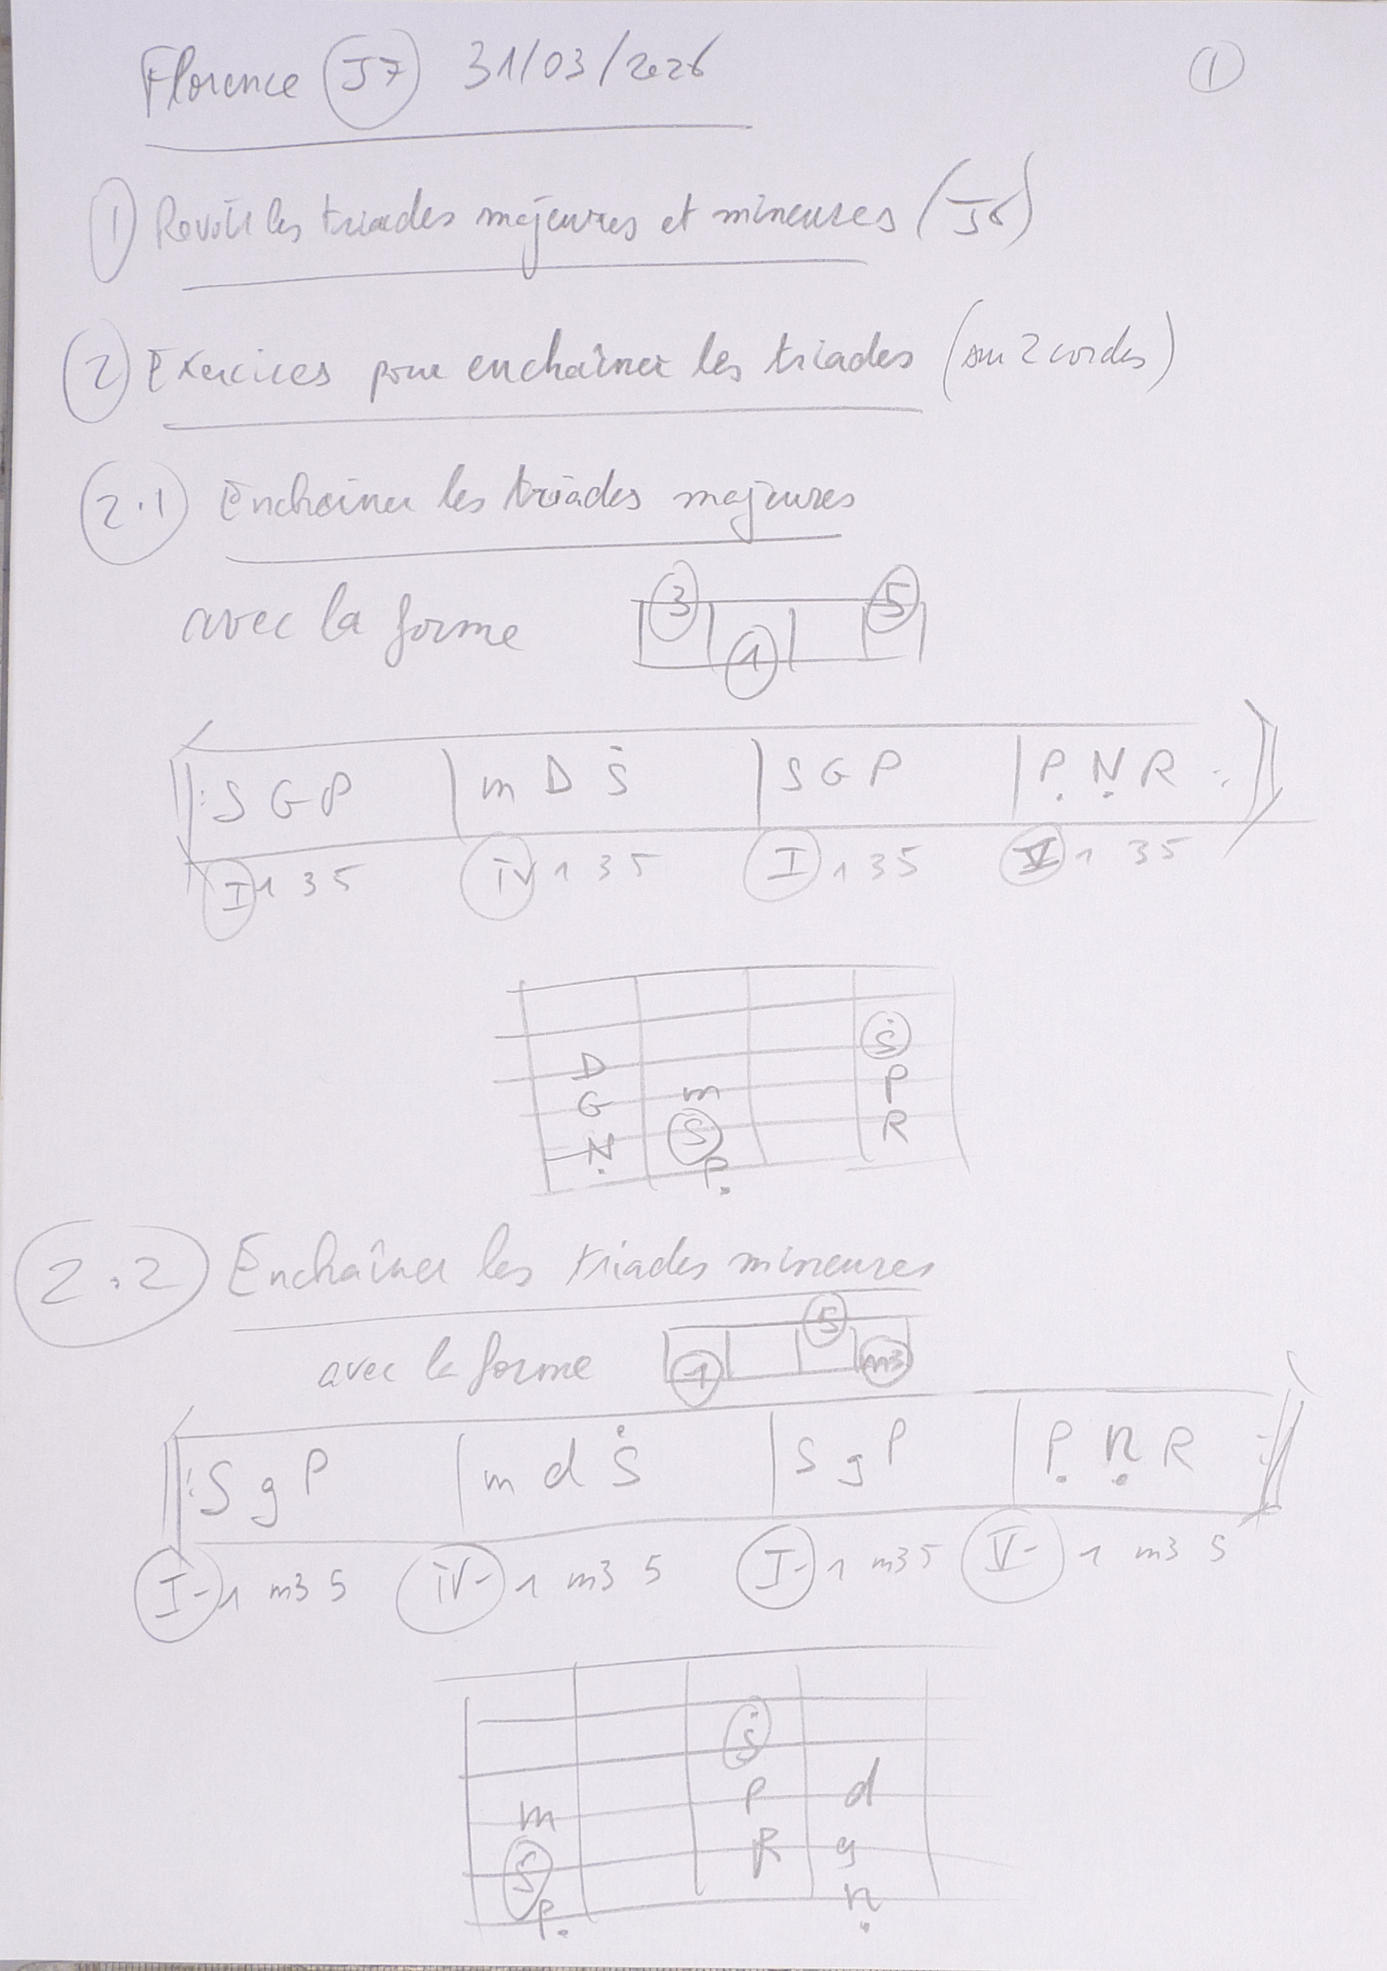 Florence J7 31/03/2026 1
1 Revoir les triades majeures et mineures (J6)
2 Exercices pour enchaîner les triades (sur 2 cordes)
2.1 Enchaîner les triades majeures
avec la forme 3 1 5
||: S G P | m D Ṡ | S G P | P̣ Ṇ R :||
I 1 3 5 IV 1 3 5 I 1 3 5 V 1 3 5
Ṡ
D P
G m R
Ṇ S
P̣
2.2 Enchaîner les triades mineures
avec la forme 1 5 m3
||: S g P | m d Ṡ | S g P | P̣ ṇ R :||
I- 1 m3 5 IV- 1 m3 5 I- 1 m3 5 V- 1 m3 5
Ṡ
m P d
S R g
P̣ ṇ